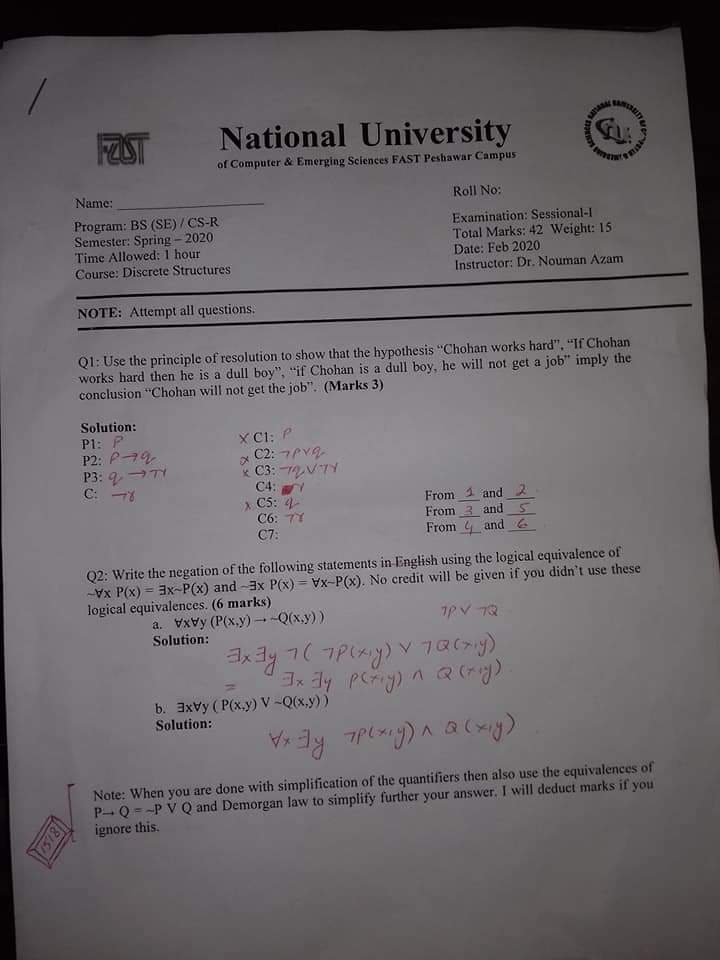 FAST
National University
of Computer & Emerging Sciences FAST Peshawar Campus
Name:
Roll No:
Program: BS (SE) / CS-R
Examination: Sessional-I
Semester: Spring – 2020
Total Marks: 42 Weight: 15
Time Allowed: 1 hour
Date: Feb 2020
Course: Discrete Structures
Instructor: Dr. Nouman Azam
NOTE: Attempt all questions.
Q1: Use the principle of resolution to show that the hypothesis “Chohan works hard”, “If Chohan
works hard then he is a dull boy”, “if Chohan is a dull boy, he will not get a job” imply the
conclusion “Chohan will not get the job”. (Marks 3)
Solution:
P1: P
P2: P→q
P3: q→¬r
C: ¬r
× C1: P
× C2: ¬P∨q
× C3: ¬q∨¬r
C4:
× C5: q
C6: ¬r
C7:
From 1 and 2
From 3 and 5
From 4 and 6
Q2: Write the negation of the following statements in English using the logical equivalence of
~∀x P(x) = ∃x~P(x) and ~∃x P(x) = ∀x~P(x). No credit will be given if you didn’t use these
logical equivalences. (6 marks)
a. ∀x∀y (P(x,y) → ~Q(x,y) )
¬P ∨ ¬Q
Solution:
∃x∃y ¬( ¬P(x,y) ∨ ¬Q(x,y)
= ∃x ∃y P(x,y) ∧ Q(x,y)
b. ∃x∀y ( P(x,y) V ~Q(x,y) )
Solution:
∀x ∃y ¬P(x,y) ∧ Q(x,y)
Note: When you are done with simplification of the quantifiers then also use the equivalences of
P→ Q = ~P V Q and Demorgan law to simplify further your answer. I will deduct marks if you
ignore this.